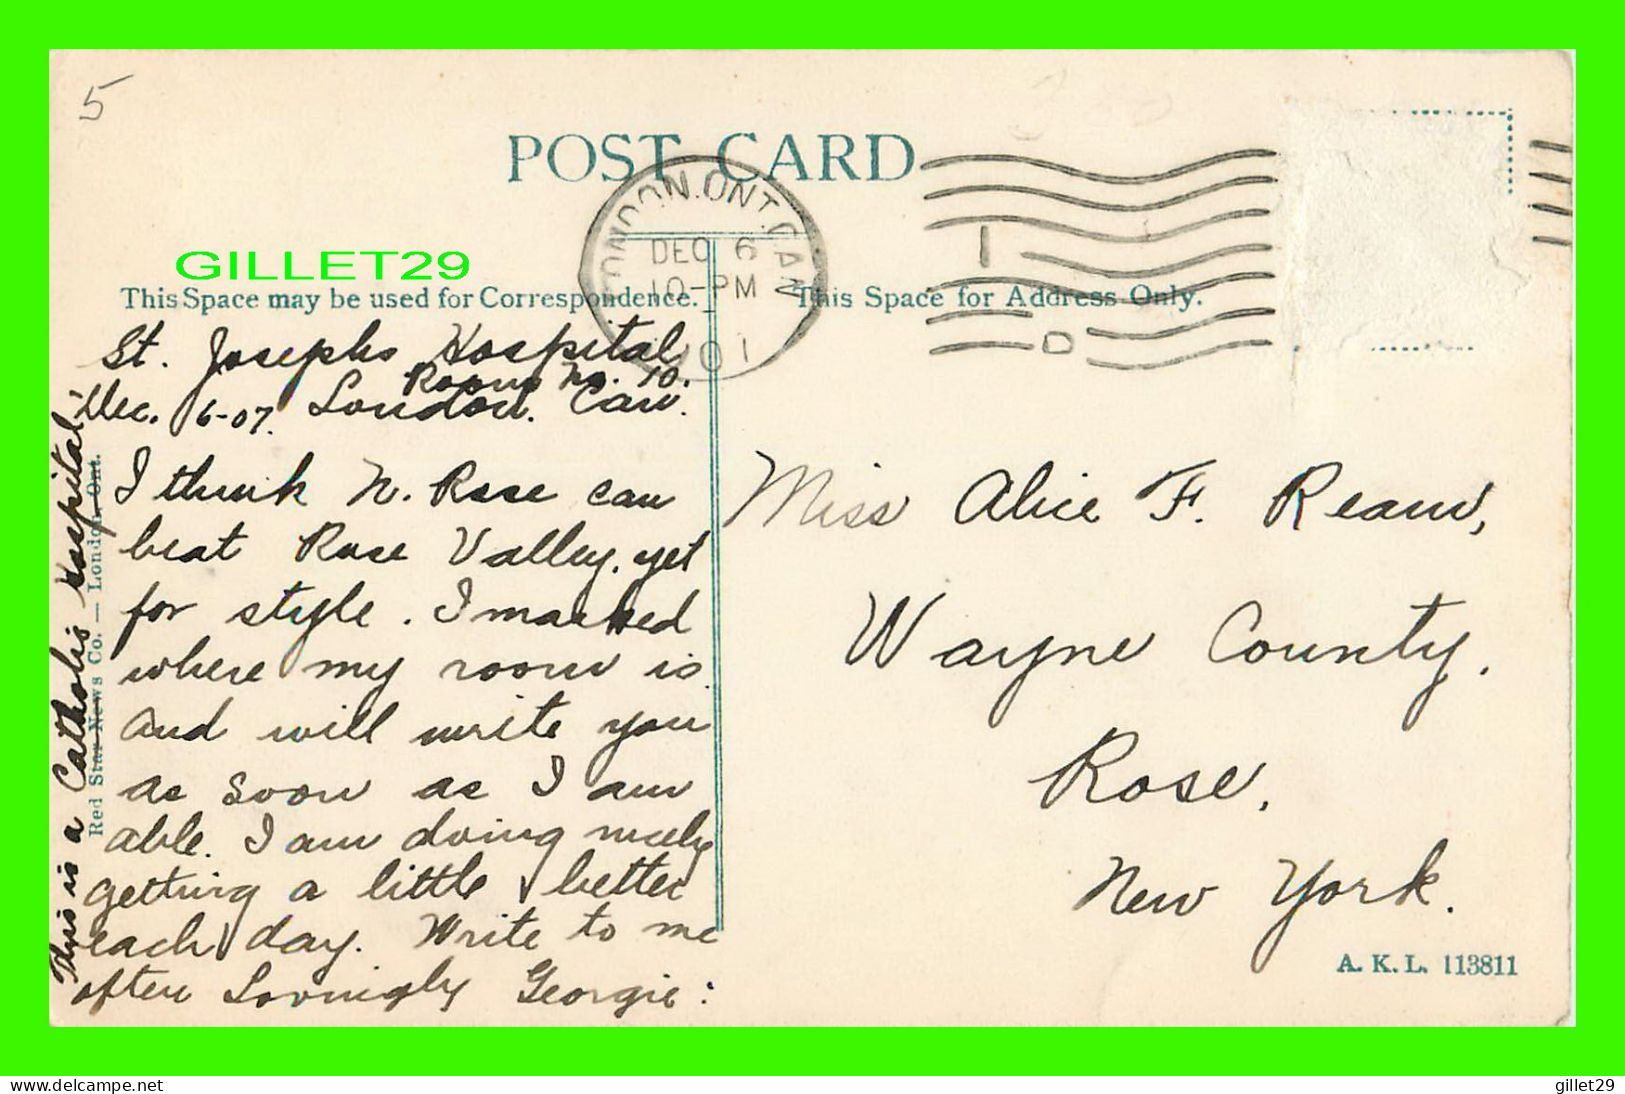 5
POST CARD
LONDON. ONT. CAN
DEC 6
10-PM
GILLET29
This Space may be used for Correspondence.
This Space for Address Only.
St. Josephs Hospital
Room No. 10.
Dec. 6-07. London. Can.
I think N. Rose can
beat Rose Valley. yet
for style. I marked
where my room is
and will write you
as soon as I am
able. I am doing nicely
getting a little better
each day. Write to me
often Lovingly Georgie:
This is a Catholic Hospital.
Red Star News Co. — London, Ont.
Miss Alice F. Ream,
Wayne County.
Rose.
New York.
A. K. L. 113811
www.delcampe.net
gillet29